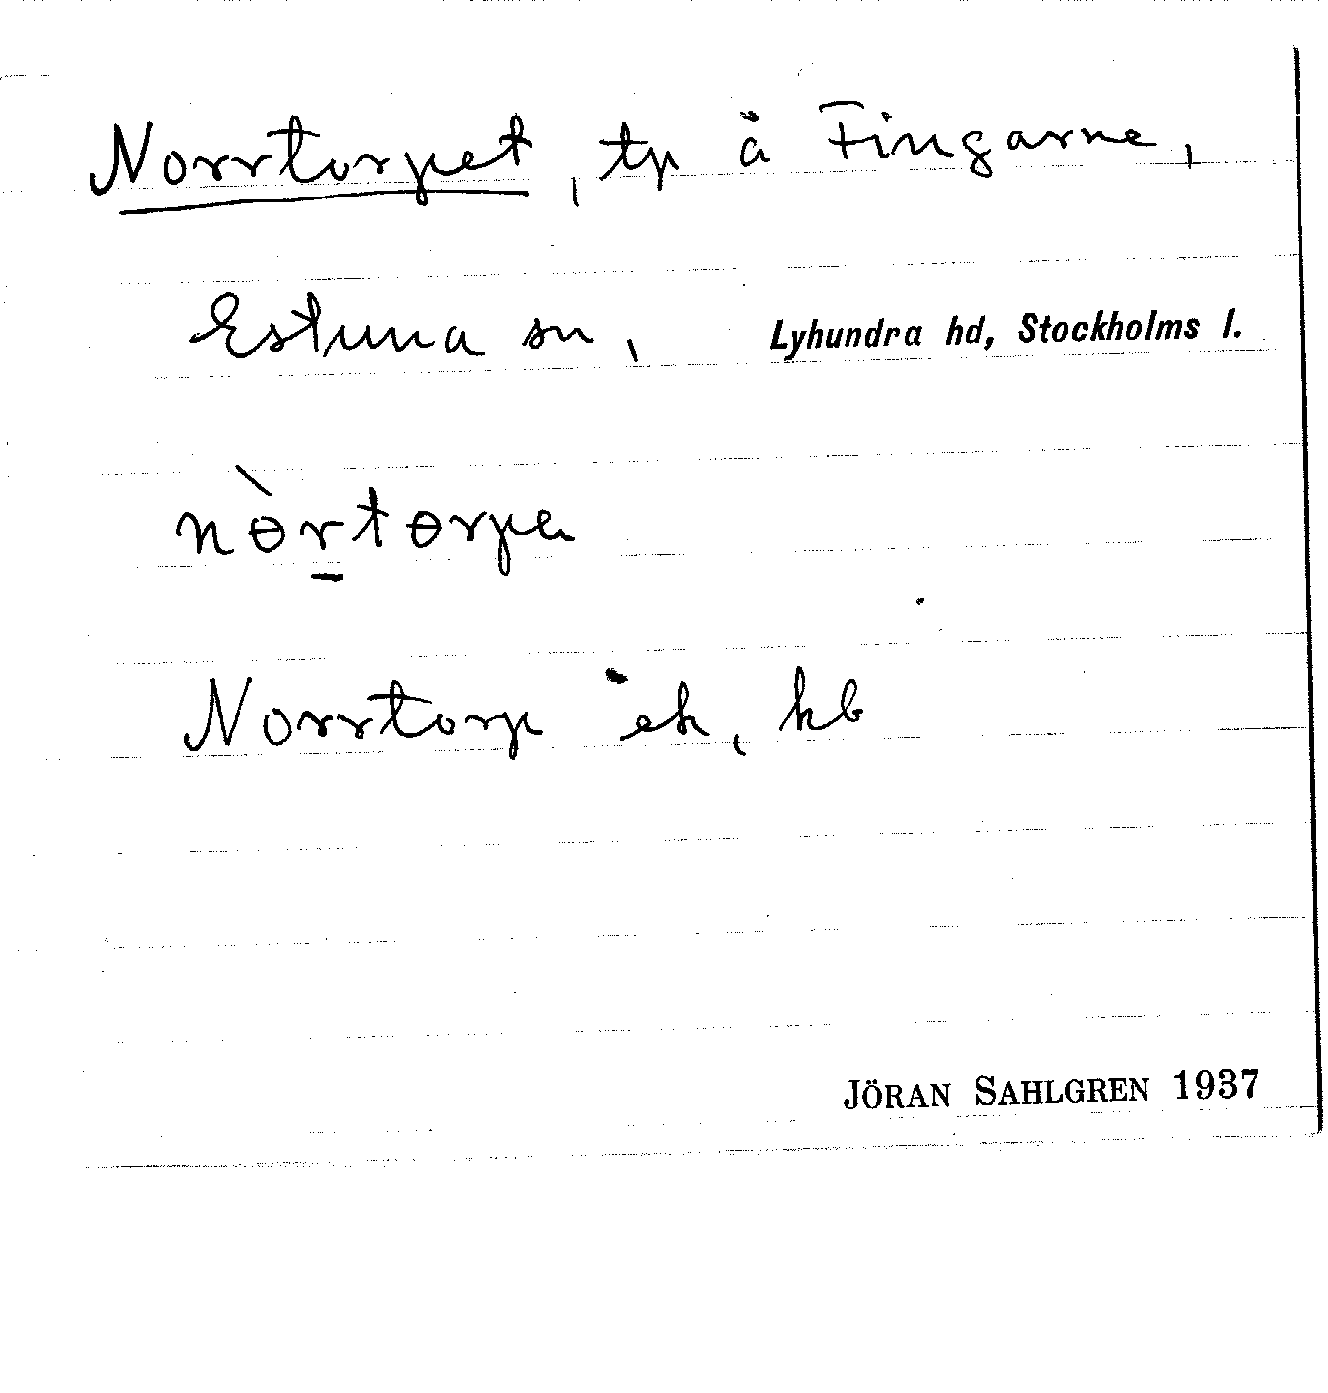 Norrtorpet, tp å Fingarne,
Estuna sn, Lyhundra hd, Stockholms l.
nɵ̀r̲tɵrpa
Norrtorp ek, hb
JÖRAN SAHLGREN 1937